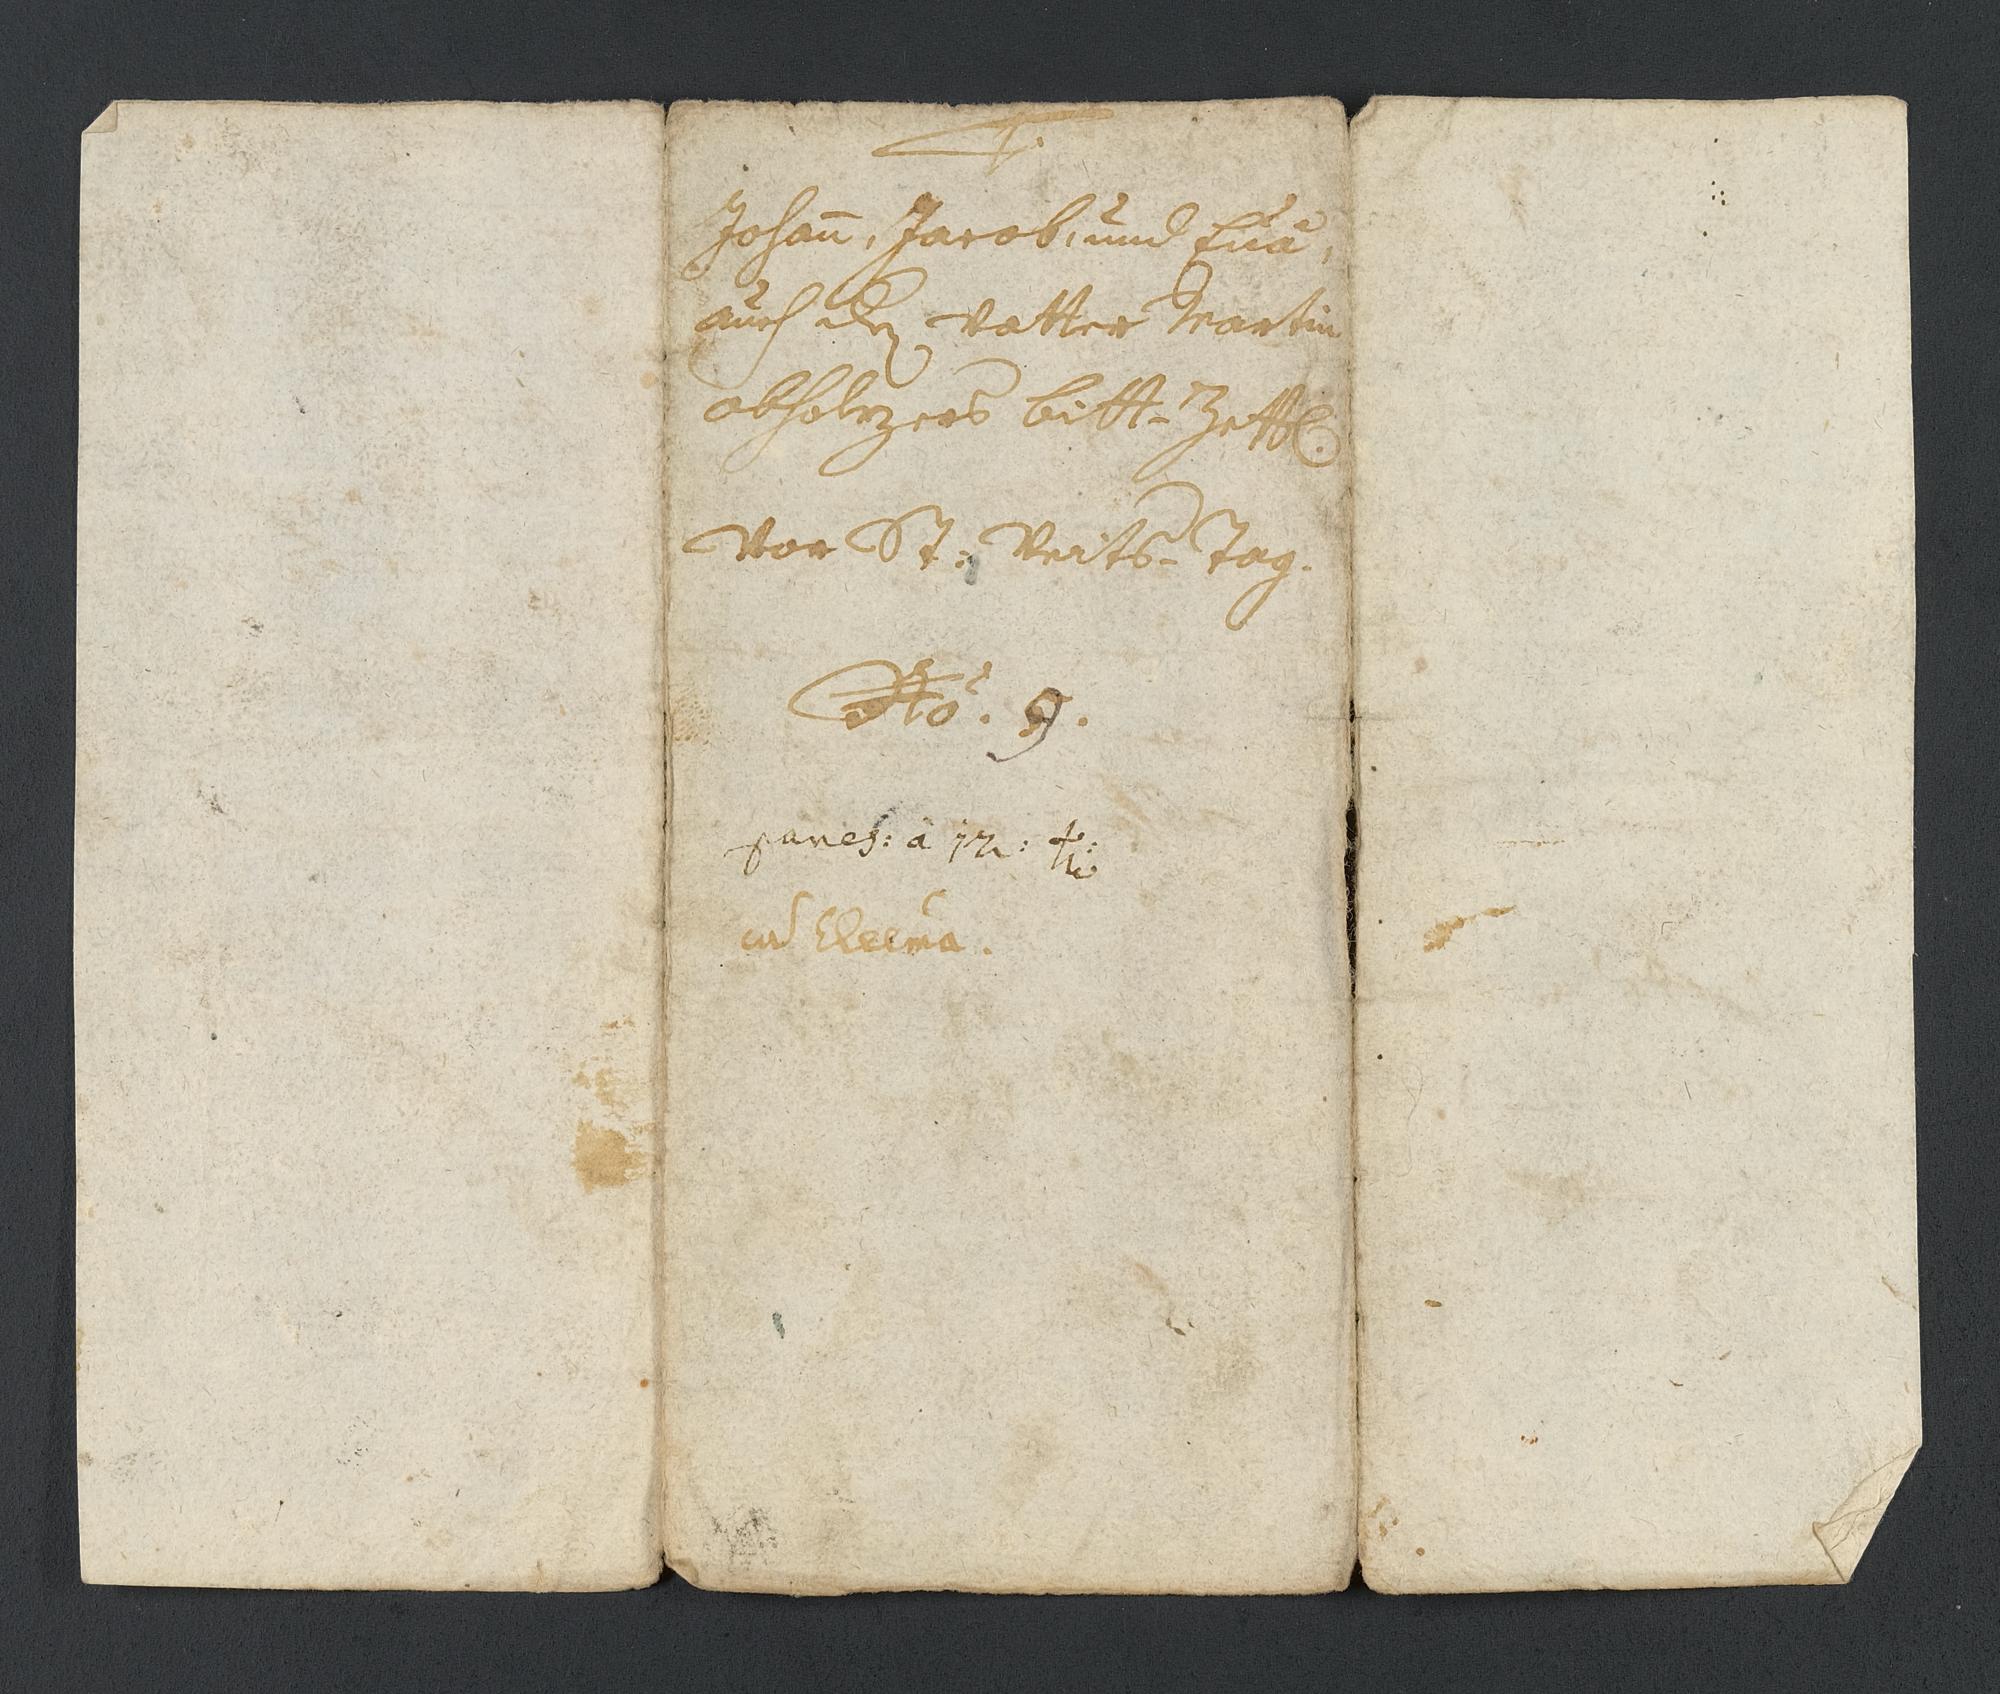 Johan̅, Jacob, und Eua,
auch der vatter Martin
obholzers bitt-Zettl.
vor St: Veits-Tag.
No. 9.
panes: à 12: 
ad Eleema.